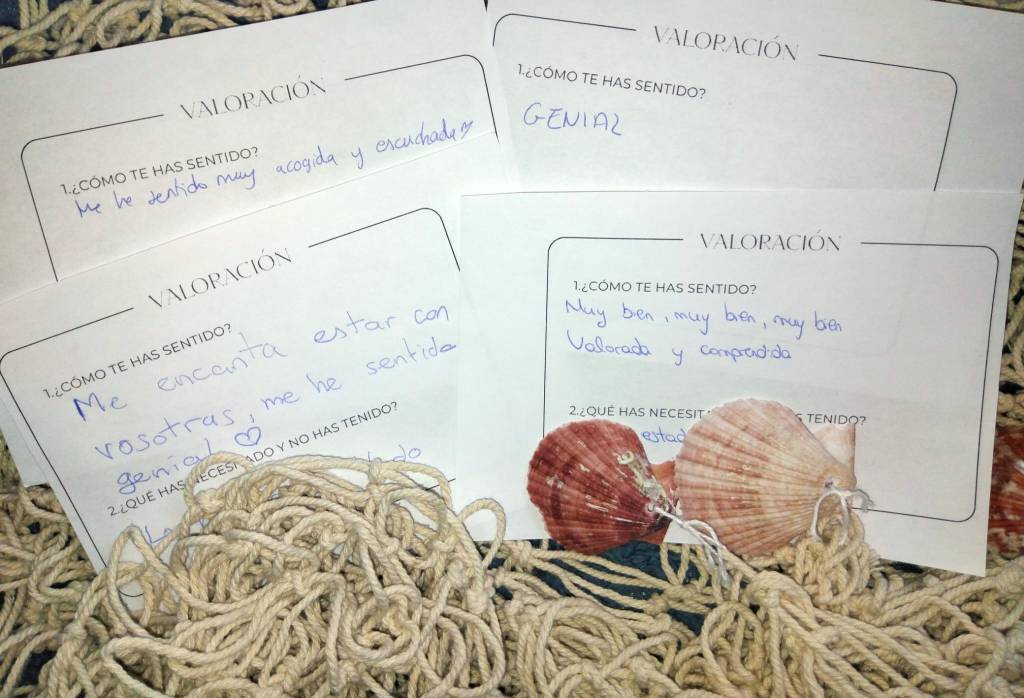 VALORACIÓN
1.¿CÓMO TE HAS SENTIDO?
Me he sentido muy acogida y escuchada
VALORACIÓN
1.¿CÓMO TE HAS SENTIDO?
GENIAL
VALORACIÓN
1.¿CÓMO TE HAS SENTIDO?
Me encanta estar con
vosotras, me he sentido
genial
2.¿QUÉ HAS NECESITADO Y NO HAS TENIDO?
VALORACIÓN
1.¿CÓMO TE HAS SENTIDO?
Muy bien, muy bien, muy bien
Valorada y comprendida
2.¿QUÉ HAS TENIDO?